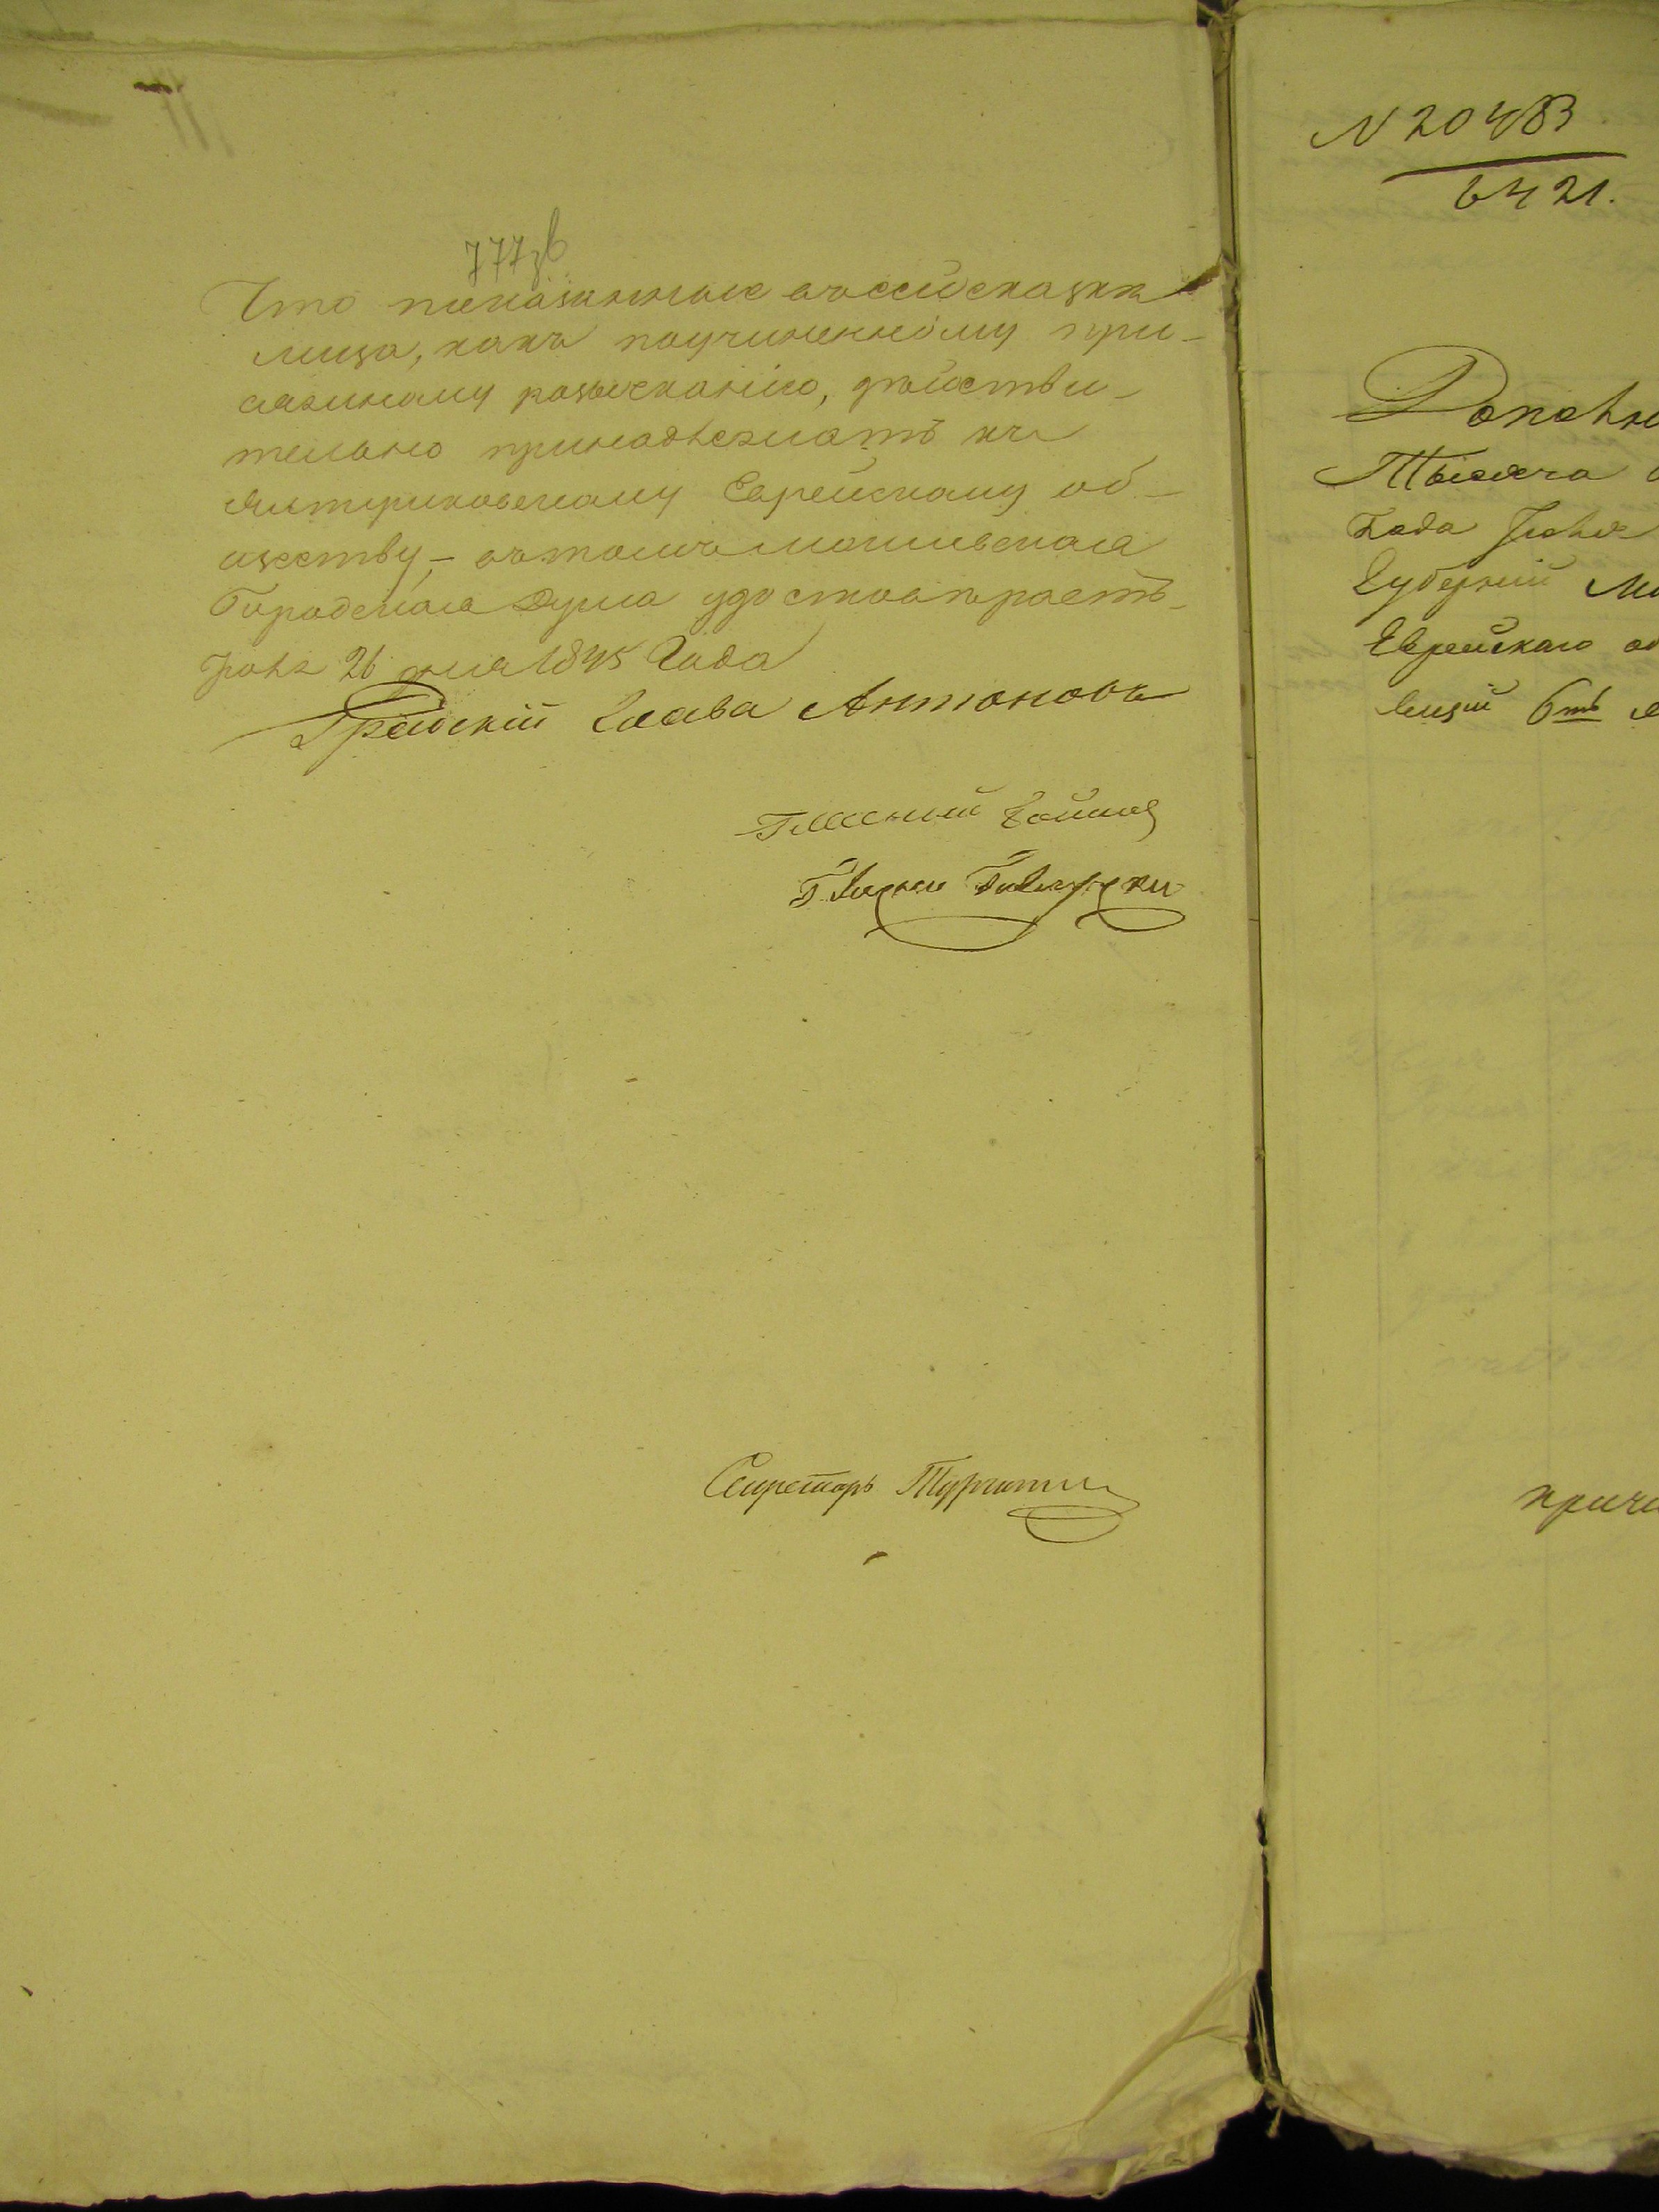 777 об
Что показанные въ сей сказкѣ
лица, какъ по учиненному при-
сяжному розысканію, дѣйстви-
тельно принадлежатъ къ
Еврейскому об-
ществу, – въ томъ Могилевская
Городская Дума удостовѣряетъ.
Іюня 26 дня 1845 Года
Градскій Глава Антоновъ
Гласный
Секретарь
N 20483
6421.
Тысяча
Года Іюня
Губерніи
Еврейскаго